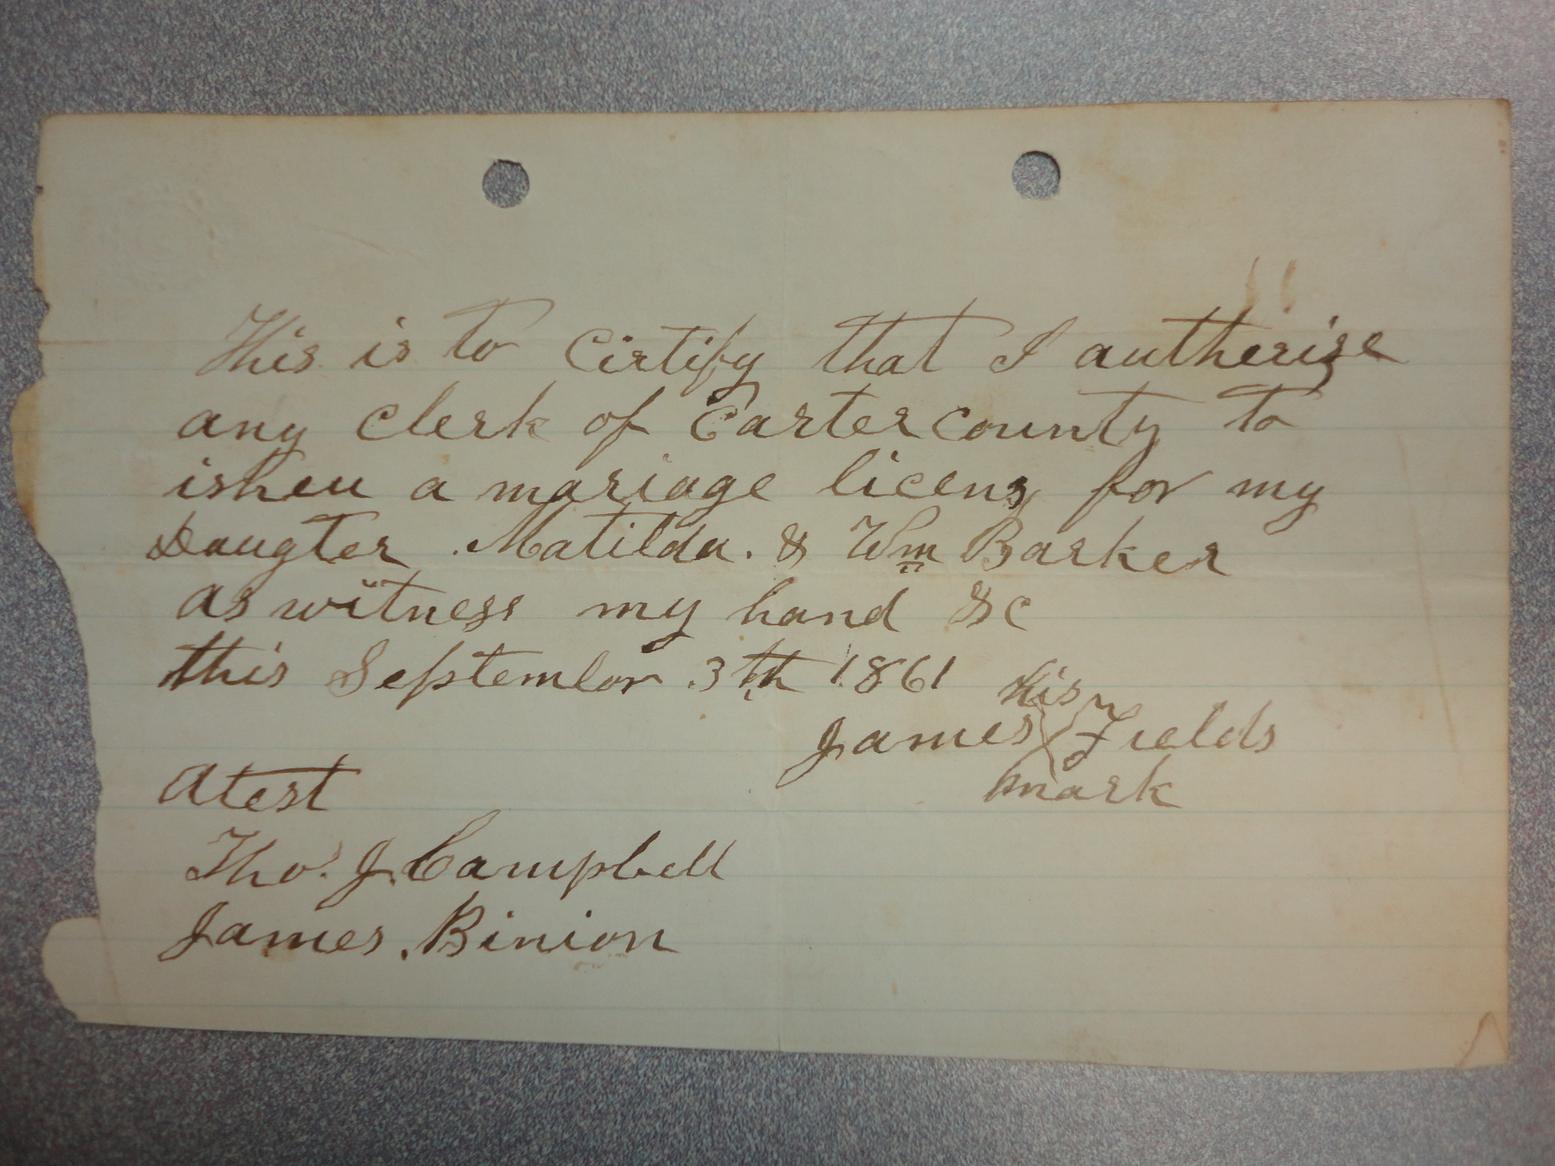 This is to Cirtify that I autherise
any clerk of Carter county to
isheu a mariage licens for my
Daugter Matilda. & Wm Barker
as witness my hand &c
this September 3th 1861
his
James X Fields
mark
Atest
Tho. J. Campbell
James. Binion